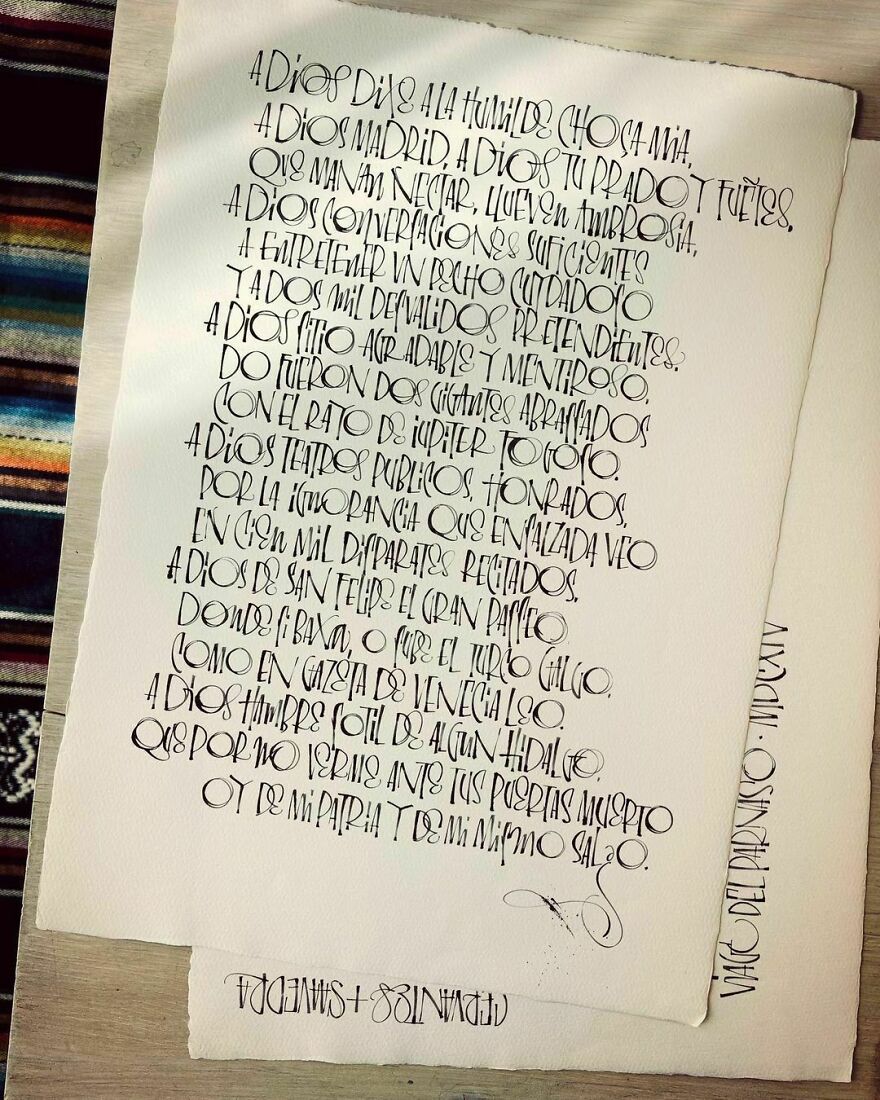 A DIOS DIXE A LA HUMILDE CHOÇA MIA,
A DIOS MADRID, A DIOS TU PRADO Y FUẼTES,
QUE MANAN NECTAR, LLUEVEN AMBROSIA,
A DIOS CONVERSACIONES SUFICIENTES
A ENTRETENER VN PECHO CUYDADOSO
Y A DOS MIL DESVALIDOS PRETENDIENTES.
A DIOS SITIO AGRADABLE Y MENTIROSO,
DO FUERON DOS GIGANTES ABRASSADOS
CON EL RAYO DE IUPITER FOGOSO.
A DIOS TEATROS PUBLICOS, HONRADOS,
POR LA IGNORANCIA QUE ENSALZADA VEO
EN CIEN MIL DISPARATES RECITADOS.
A DIOS DE SAN FELIPE EL GRAN PASSEO
DONDE SI BAXA, O SUBE EL TURCO GALGO,
COMO EN GAZETA DE VENECIA LEO.
A DIOS HAMBRE SOTIL DE ALGUN HIDALGO,
QUE POR NO VERME ANTE TUS PUERTAS MUERTO
OY DE MI PATRIA Y DE MI MISMO SALGO.
VIAGE DEL PARNASO · MDCXIV
CERVANTES + SAAVEDRA